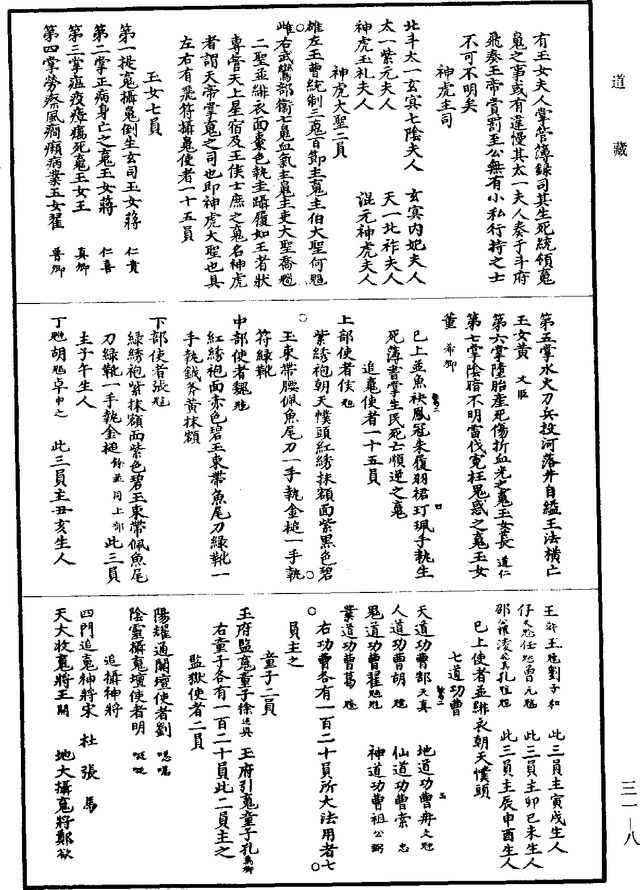 道藏
有玉女夫人掌管簿録司其生死統領䰟
䰟之事或有違慢其太一夫人奏于斗府
飛奏玉帝賞罰至公無有小私行持之士
不可不明矣
神虎主司
北斗太一玄冥七陰夫人　玄冥内妃夫人
太一紫元夫人　天一北祚夫人
神虎玉札夫人　混元神虎夫人
神虎大聖二員
雄左玉曾統制三䰟百節主䰟主伯大聖何
雌右武鸞部衛七䰟血氣主䰟主吏大聖喬
二聖並緋衣面棗色執圭躡履如王者狀
專管天上星宿及王侯士庶之䰟名神虎
者謂天帝掌䰟之司也即神虎大聖也具
左右有飛符攝䰟使者一十五員
玉女七員
第一捉䰟攝䰟倒生玄司玉女蔣　仁貴
第二掌正病身亡之䰟玉女蔣　仁喜
第三掌瘟疫瘴癘死䰟玉女王　真卿
第四掌勞瘵風癎癩病業玉女翟　晋卿
第五掌水火刀兵投河落井自縊王法横亡
玉女黄　文臣
第六掌墮胎産死傷折血光之䰟玉女長　道仁
第七掌陰暗不明雷伐寃枉鬼惑之䰟玉女
董　希卿
已上並魚袂鳳冠朱履羽裙玎珮手執生
死簿書掌生民死亡順逆之䰟
追䰟使者一十五員
上部使者侯
紫綉袍朝天幞頭紅綉抹額面紫黑色碧
玉束帶腰佩魚尾刀一手執金鎚一手執
符緑靴
中部使者魏
紅綉袍面赤色碧玉束帶魚尾刀緑靴一
手執鉞斧黄抹額
下部使者張
緑綉袍紫抹額面紫色碧玉束帶佩魚尾
刀緑靴一手執金鎚餘並同上部此三員
主子午生人
丁　胡　卓中之　此三員主丑亥生人
王　玉　劉子和　此三員主寅戌生人
仔　任　曾元　此三員主卯巳未生人
邵公雅凌公真孔　此三員主辰申酉生人
已上使者並緋衣朝天幞頭
七道功曹
天道功曹郜天真　地道功曹冉文
人道功曹胡　仙道功曹索忠
鬼道功曹翟　神道功曹祖公弼
業道功曹葛
右功曹各有一百二十員所大法用者七
員主之
童子二員
玉府監䰟童子徐道興　玉府引䰟童子孔爲卿
右童子各有一百二十員此二員主之
監獄使者二員
陽耀通關壇使者劉
陰靈攝䰟壇使者明
追攝神將
四門追䰟神將宋　杜　張　馬
天大收䰟將王開　地大攝䰟將鄭欲
三一－八